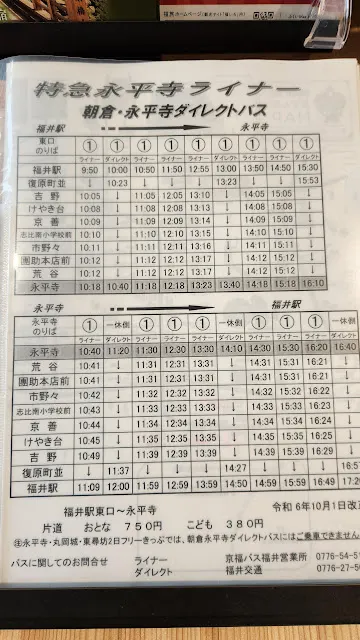 特急永平寺ライナー
朝倉・永平寺ダイレクトバス
福井駅 永平寺
東口のりば ① ① ① ① ① ① ① ① ①
ライナー ダイレクト ライナー ライナー ライナー ダイレクト ライナー ライナー ダイレクト
福井駅 9:50 10:00 10:50 11:50 12:55 13:00 13:50 14:50 15:30
復原町並 ↓ 10:23 ↓ ↓ ↓ 13:23 ↓ ↓ 15:53
吉野 10:05 ↓ 11:05 12:05 13:10 ↓ 14:05 15:05 ↓
けやき台 10:08 ↓ 11:08 12:08 13:13 ↓ 14:08 15:08 ↓
京善 10:09 ↓ 11:09 12:09 13:14 ↓ 14:09 15:09 ↓
志比南小学校前 10:10 ↓ 11:10 12:10 13:15 ↓ 14:10 15:10 ↓
市野々 10:11 ↓ 11:11 12:11 13:16 ↓ 14:11 15:11 ↓
團助本店前 10:12 ↓ 11:12 12:12 13:17 ↓ 14:12 15:12 ↓
荒谷 10:12 ↓ 11:12 12:12 13:17 ↓ 14:12 15:12 ↓
永平寺 10:18 10:40 11:18 12:18 13:23 13:40 14:18 15:18 16:10
永平寺 福井駅
永平寺のりば ① 一休側 ① ① ① 一休側 ① ① ① 一休側
ライナー ダイレクト ライナー ライナー ライナー ダイレクト ライナー ライナー ライナー ダイレクト
永平寺 10:40 11:20 11:30 12:30 13:30 14:10 14:30 15:30 16:20 16:40
荒谷 10:41 ↓ 11:31 12:31 13:31 ↓ 14:31 15:31 16:21 ↓
團助本店前 10:41 ↓ 11:31 12:31 13:31 ↓ 14:31 15:31 16:21 ↓
市野々 10:42 ↓ 11:32 12:32 13:32 ↓ 14:32 15:32 16:22 ↓
志比南小学校前 10:43 ↓ 11:33 12:33 13:33 ↓ 14:33 15:33 16:23 ↓
京善 10:44 ↓ 11:34 12:34 13:34 ↓ 14:34 15:34 16:24 ↓
けやき台 10:45 ↓ 11:35 12:35 13:35 ↓ 14:35 15:35 16:25 ↓
吉野 10:49 ↓ 11:39 12:39 13:39 ↓ 14:39 15:39 16:29 ↓
復原町並 ↓ 11:37 ↓ ↓ ↓ 14:27 ↓ ↓ ↓ 16:5
福井駅 11:09 12:00 11:59 12:59 13:59 14:50 14:59 15:59 16:49 17:2
福井駅東口～永平寺 令和 6年10月1日改
片道 おとな 750円 こども 380円
㊟永平寺・丸岡城・東尋坊2日フリーきっぷでは、朝倉永平寺ダイレクトバスにはご乗車できません
バスに関してのお問合せ ライナー 京福バス福井営業所 0776-54-5
ダイレクト 福井交通 0776-27-5